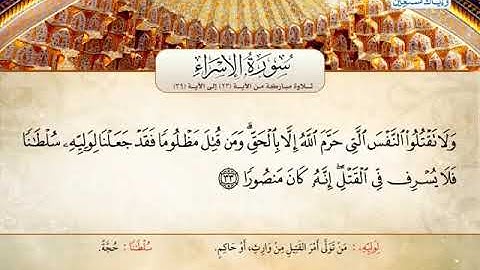 سُورَةُ الإِسْرَاءِ
تلاوة مباركة من الآية (٢٣) إلى الآية (٣٩)
وَلَا تَقْتُلُوا۟ ٱلنَّفْسَ ٱلَّتِى حَرَّمَ ٱللَّهُ إِلَّا بِٱلْحَقِّ ۗ وَمَن قُتِلَ مَظْلُومًا فَقَدْ جَعَلْنَا لِوَلِيِّهِۦ سُلْطَـٰنًا
فَلَا يُسْرِف فِّى ٱلْقَتْلِ ۖ إِنَّهُۥ كَانَ مَنصُورًا ٣٣
لِوَلِيِّهِ: مَنْ تَوَلَّى أَمْرَ القَتِيلِ مِنْ وَارِثٍ، أَوْ حَاكِمٍ. سُلْطَانًا: حُجَّةً.